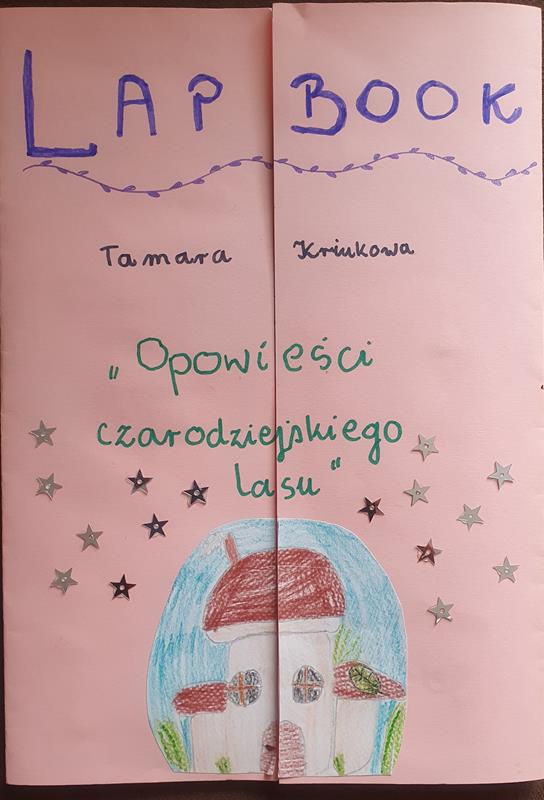 LAP BOOK
Tamara Kriukowa
„Opowieści
czarodziejskiego
lasu”